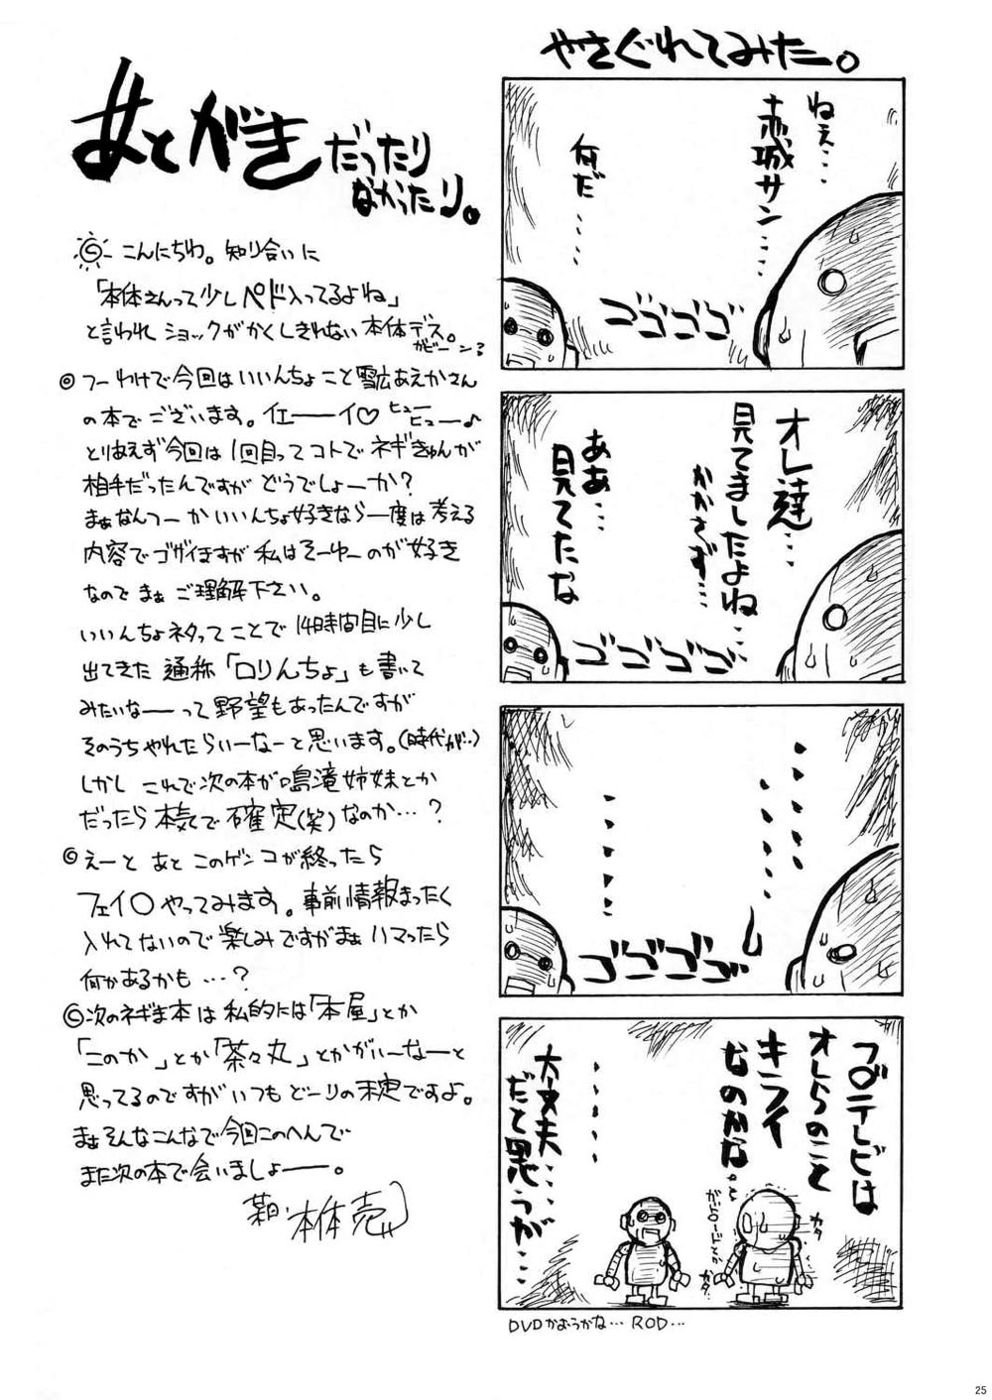 あとがき だったり
なかったり。
こんにちわ。知り合いに
「本体さんって少しペド入ってるよね」
と言われショックがかくしきれない本体デス。
ガビーン
◎つーわけで今回はいいんちょこと雪広あえかさん
の本でございます。イエーーイ♡ ヒュー
ヒュー♪
とりあえず今回は1回目ってコトでネギきゅんが
相手だったんですがどうでしょーか?
まぁなんつーかいいんちょ好きなら一度は考える
内容でゴザイますが私はそーゆーのが好き
なのでまぁご理解下さい。
いいんちょネタってことで14時間目に少し
出てきた通称「ロリんちょ」も書いて
みたいなーーって野望もあったんですが
そのうちやれたらいーなーと思います。(時代が…)
しかしこれで次の本が鳴滝姉妹とか
だったら本気で確定(笑)なのか…?
◎えーと あと このゲンコが終ったら
フェイ○やってみます。事前情報まったく
入れてないので楽しみですがまぁハマったら
何かあるかも…?
◎次のネギま本は私的には「本屋」とか
「このか」とか「茶々丸」とかがいーなーと
思ってるのですがいつもどーりの未定ですよ。
まぁそんなこんなで今回このへんで
また次の本で会いましょーー。
本体 売
やさぐれてみた。
ねぇ…
赤城サン…
何だ…
ゴゴゴゴゴ
オレ達…
見てましたよね…
かかさず…
ああ…
見てたな
ゴゴゴゴゴ
ゴゴゴゴゴ
フ○テレビは
オレらのこと
キライ
なのかな…
ガドガードとか
カタ
カタ…
大丈夫…
だと思うが…
DVDかおうかな… ROD…
25